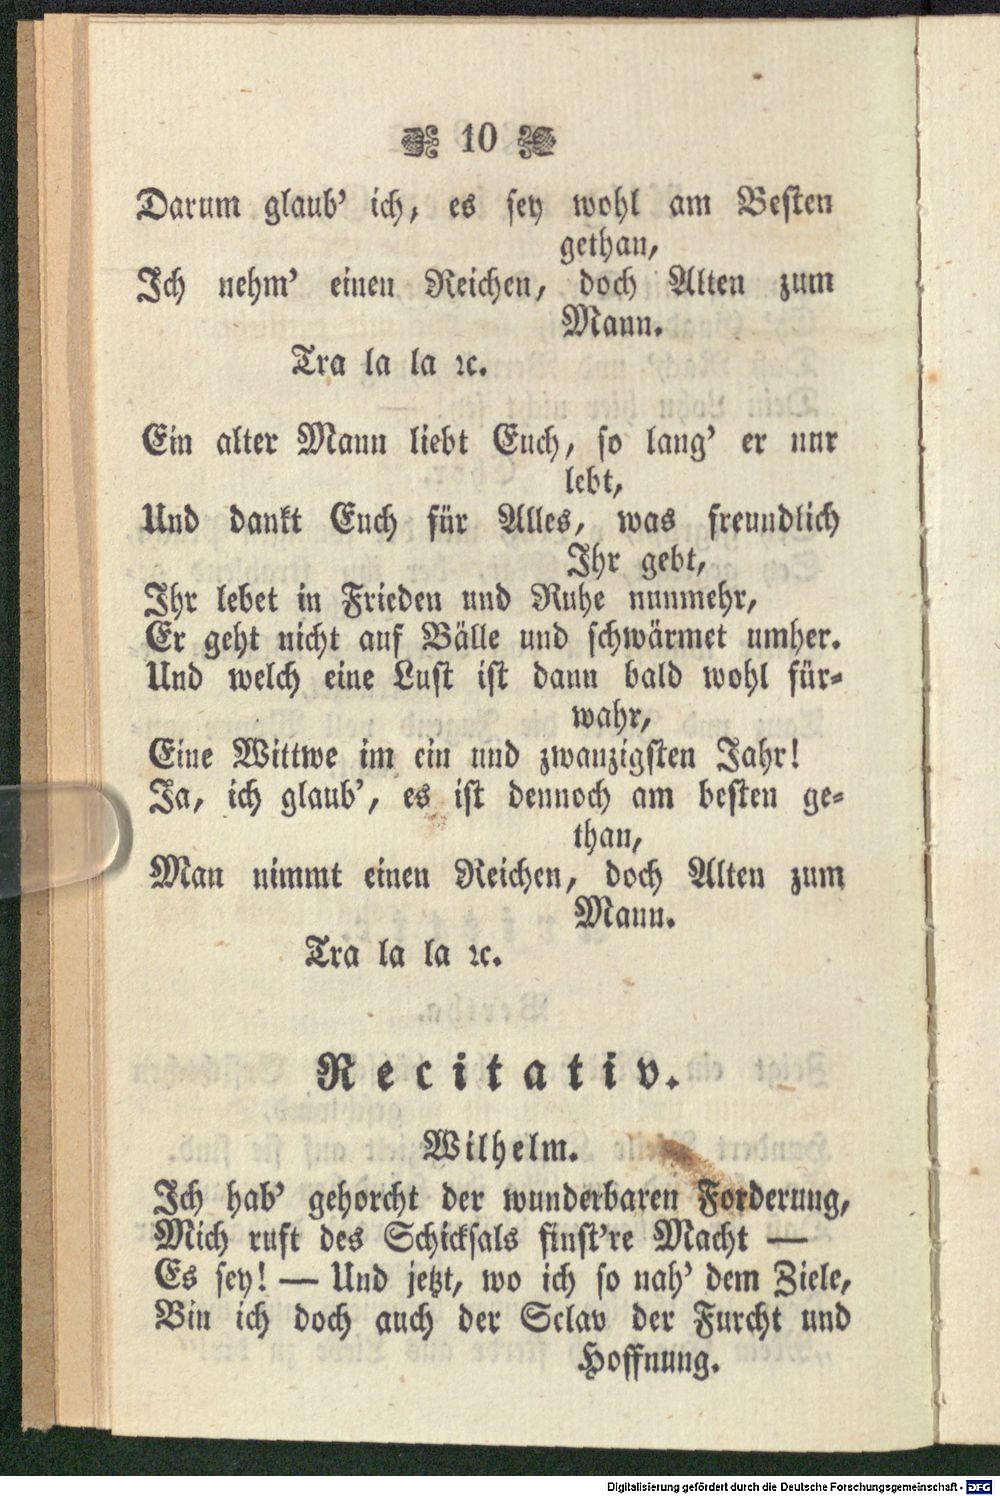 10
Darum glaub' ich, es sey wohl am Besten
gethan,
Ich nehm' einen Reichen, doch Alten zum
Mann.
Tra la la ꝛc.
Ein alter Mann liebt Euch, so lang' er nur
lebt,
Und dankt Euch für Alles, was freundlich
Ihr gebt,
Ihr lebet in Frieden und Ruhe nunmehr,
Er geht nicht auf Bälle und schwärmet umher.
Und welch eine Lust ist dann bald wohl für-
wahr,
Eine Wittwe im ein und zwanzigsten Jahr!
Ja, ich glaub', es ist dennoch am besten ge-
than,
Man nimmt einen Reichen, doch Alten zum
Mann.
Tra la la ꝛc.
Recitativ.
Wilhelm.
Ich hab' gehorcht der wunderbaren Forderung,
Mich ruft des Schicksals finst're Macht —
Es sey! — Und jetzt, wo ich so nah' dem Ziele,
Bin ich doch auch der Sclav der Furcht und
Hoffnung.
Digitalisierung gefördert durch die Deutsche Forschungsgemeinschaft - DFG